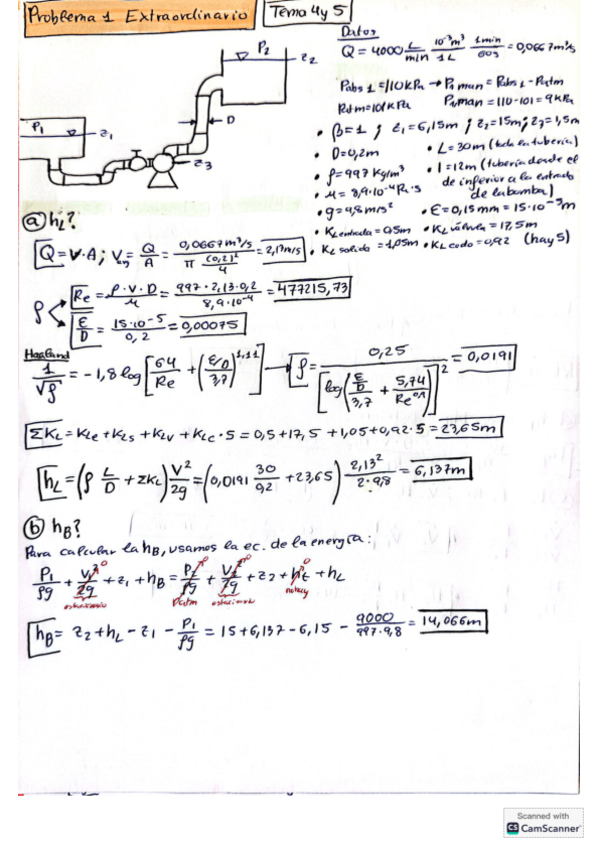 Problema 1 Extraordinario
Tema 4 y 5
Datos
Q = 4000 L/min 10⁻³m³/1L 1min/60s = 0,0667 m³/s
Pabs1 = 110 kPa → P1man = Pabs1 - Patm
Patm = 101 kPa P1man = 110-101 = 9 kPa
• β=1 ; z1 = 6,15m ; z2 = 15m ; z3 = 1,5m
• D = 0,2m • L = 30m (toda la tubería)
• ρ = 997 kg/m³ • l = 12m (tubería desde el
de inferior a la entrada
de la bomba)
• μ = 8,9·10⁻⁴ Pa·s
• g = 9,8 m/s² • ε = 0,15 mm = 15·10⁻⁵m
• KL entrada = 0,5m • KL válvula = 17,5m
• KL salida = 1,05m • KL codo = 0,92 (hay 5)
P1
z1
P2
z2
D
z3
a) hL?
Q = V·A ; V = Q/A = 0,0667 m³/s / π (0,2)²/4 = 2,13 m/s
Re = ρ·V·D/μ = 997·2,13·0,2 / 8,9·10⁻⁴ = 477215,73
ƒ
ε/D = 15·10⁻⁵/0,2 = 0,00075
Haaland
1/√ƒ = -1,8 log [64/Re + (ε/D / 3,7)^1,11] → ƒ = 0,25 / [log(ε/D / 3,7 + 5,74/Re^0,9)]² = 0,0191
ΣKL = KLe + KLs + KLv + KLc · 5 = 0,5 + 17,5 + 1,05 + 0,92·5 = 23,65m
hL = (ƒ L/D + ΣKL) V²/2g = (0,0191 30/0,2 + 23,65) 2,13²/2·9,8 = 6,137m
b) hB?
Para calcular la hB, usamos la ec. de la energía:
P1/ρg + V1²/2g⁰ + z1 + hB = P2/ρg⁰ + V2²/2g⁰ + z2 + ht⁰ + hL
estacionario Patm estacionario no hay
hB = z2 + hL - z1 - P1/ρg = 15 + 6,137 - 6,15 - 9000/997·9,8 = 14,066m
Scanned with
CS CamScanner